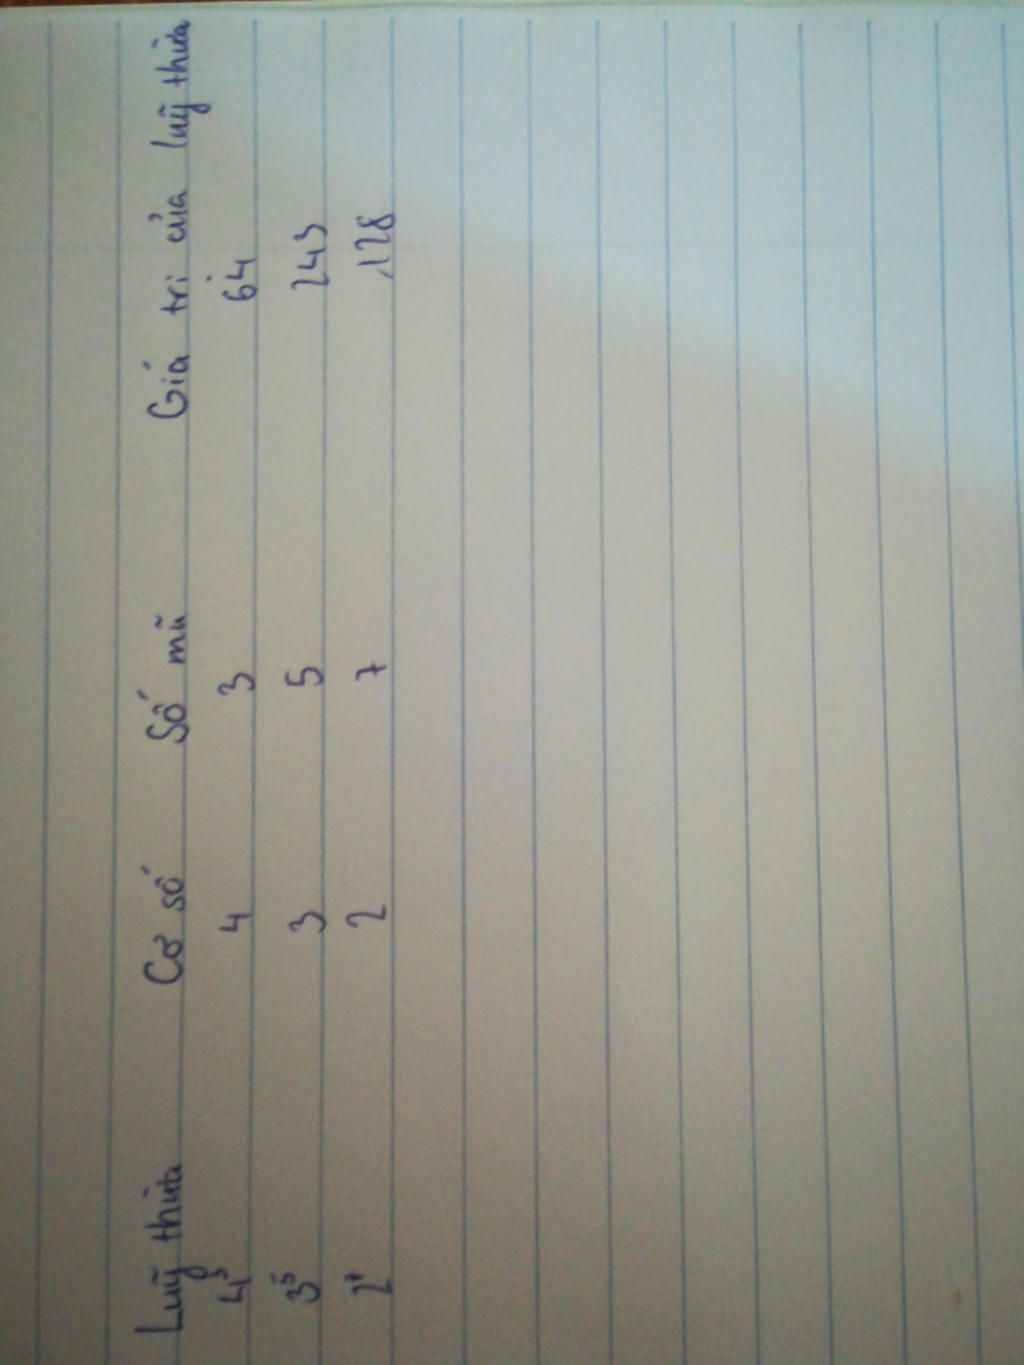 Luỹ thừa Cơ số Số mũ Giá trị của luỹ thừa
4³ 4 3 64
3⁵ 3 5 243
2⁷ 2 7 128